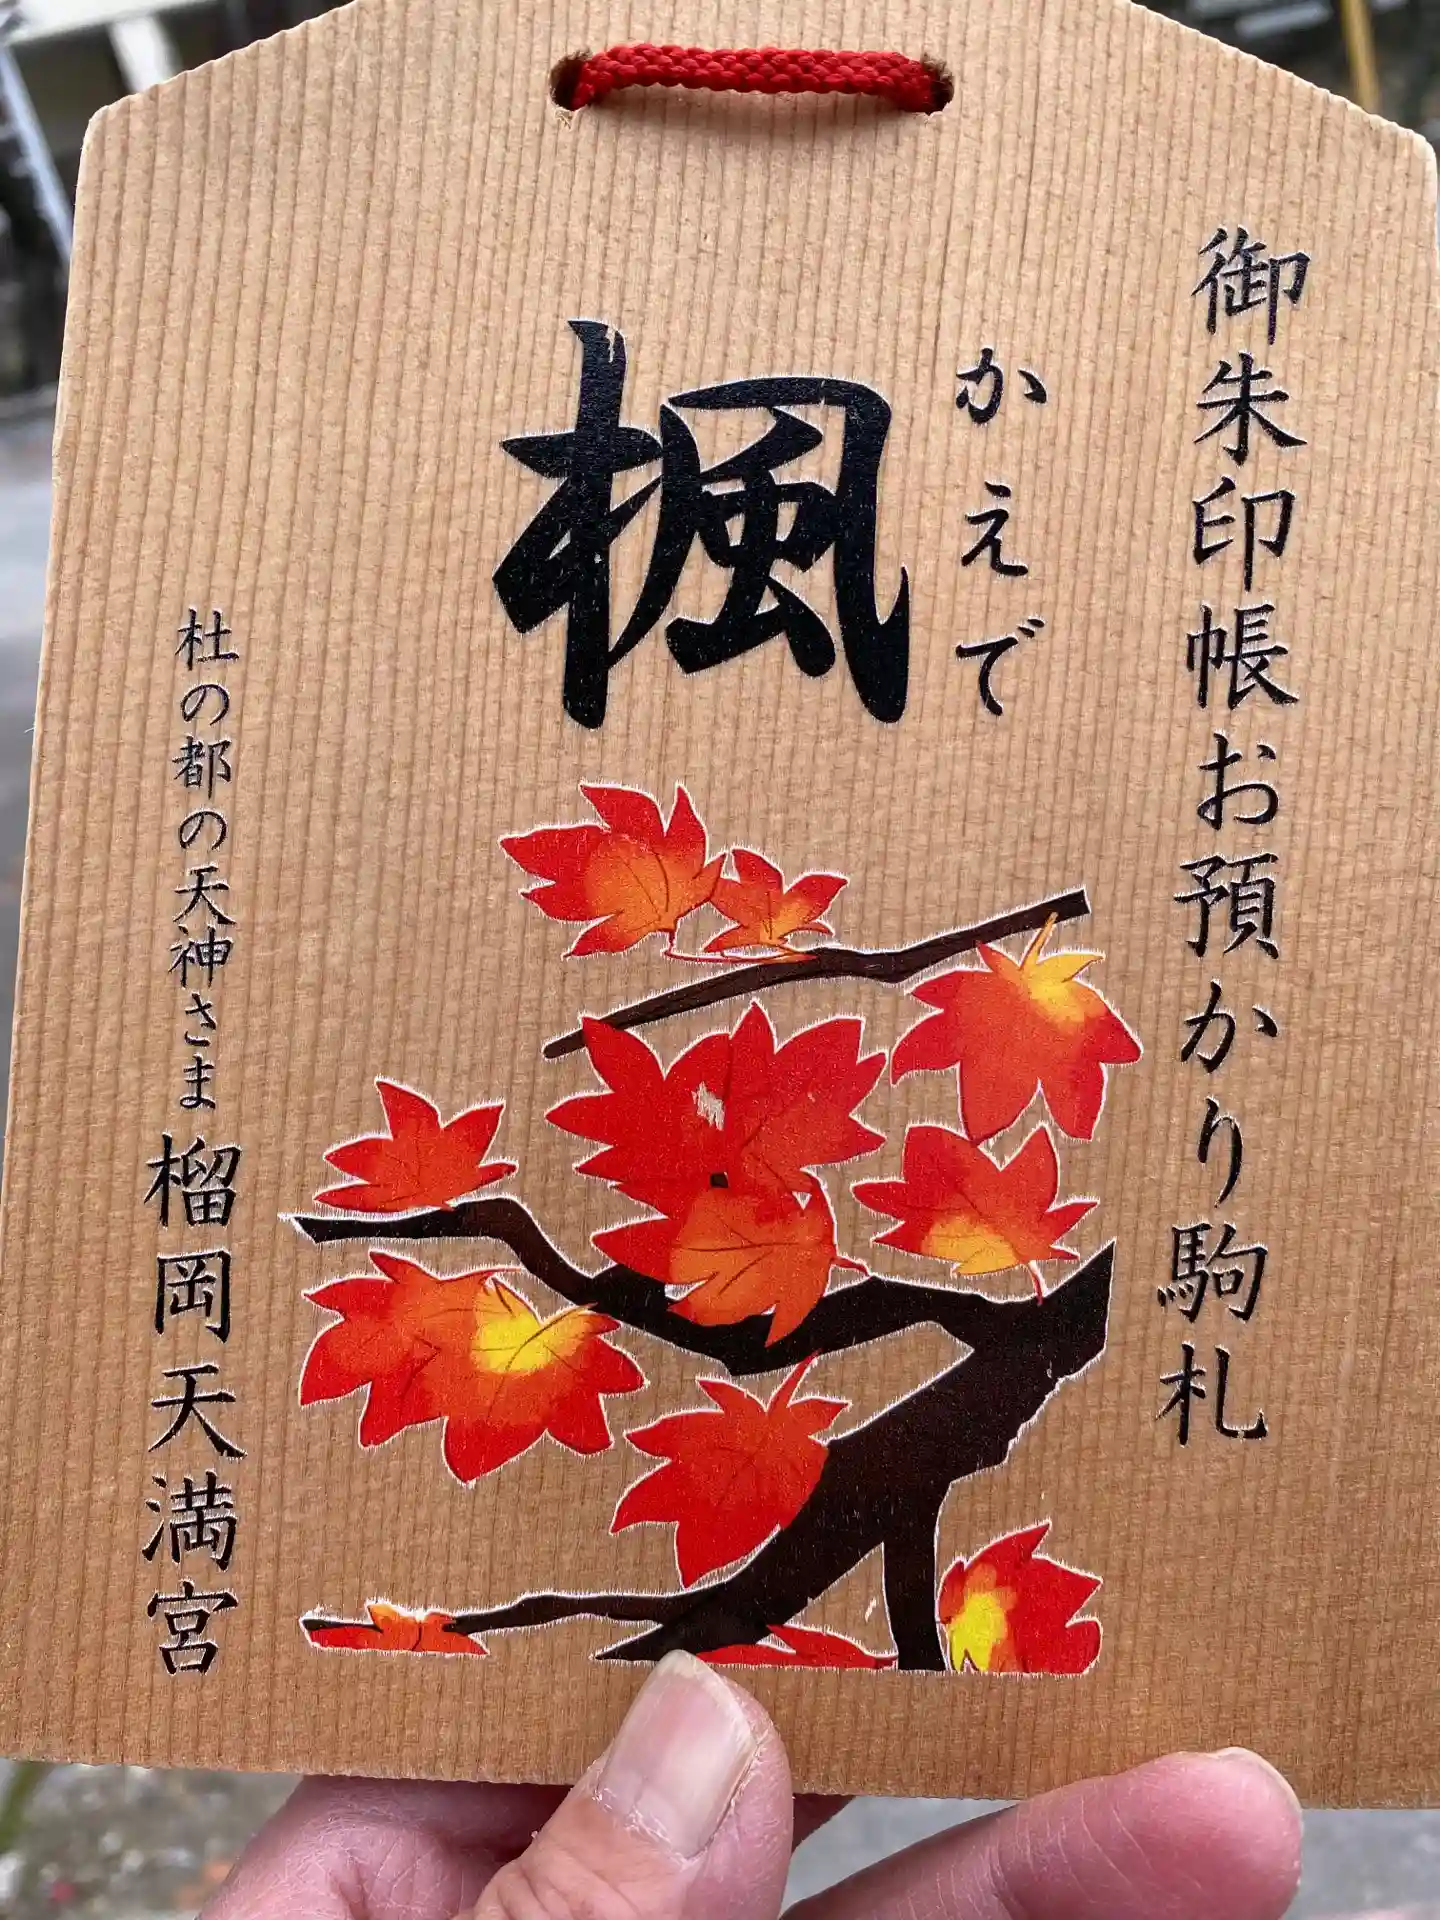 御朱印帳お預かり駒札
かえで
楓
杜の都の天神さま榴岡天満宮